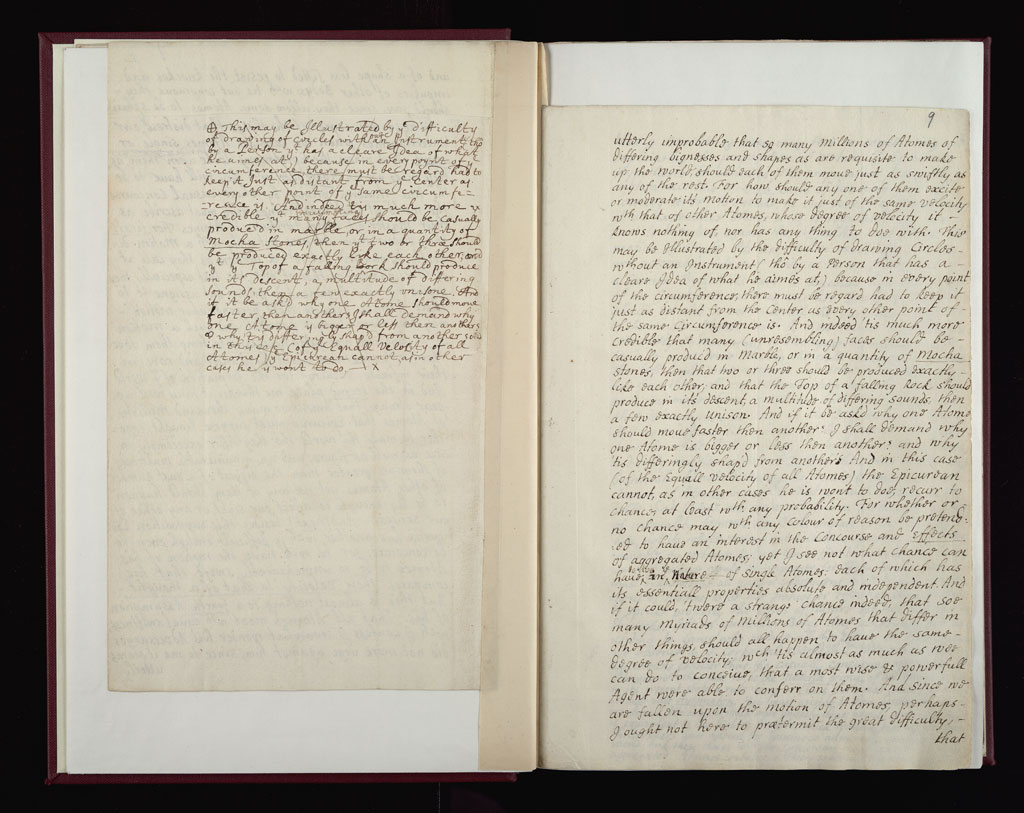 ⊕ This may be Illustrated by yᵉ difficulty
of drawing of Circles without an Instrument, tho
by a Person yᵗ has a cleare Idea of what
he aimes at,) because in every poynt of yᵉ
circumference, there must be regard had to
keep it Just as distant from yᵉ Center as
every other point of yᵉ same circumfe-
rence is. And indeed tis much more
credible yᵗ many unresembling faces should be casually
produc'd in marble, or in a quantity of
Mocha Stones, then yᵗ two or three should
be produced exactly like each other, and
yᵗ yᵉ Top of a falling Rock should produce
in it's Descent, a multitude of differing
sounds, then a few exactly unisone. And
if it be ask'd why one Atome should move
faster, then another, I shall demand why
one Atome is bigger or less then another,
& why tis differingly shap'd from another
in this case (of yᵉ Equall Velocity of all
Atomes) yᵉ Epicurean cannot, as in other
cases he is wont to do. x
9
utterly improbable that so many Millions of Atomes of
differing bignesses and shapes as are requisite to make
up the world should each of them move just as swiftly as
any of the rest. For how should any one of them excite
or moderate its Motion to make it just of the same velocity
wth that of other Atomes, whose degree of velocity it -
knows nothing of, nor has any thing to doe with. This
may be Illustrated by the difficulty of drawing Circles -
without an Instrument (tho' by a Person that has a -
cleare Idea of what he aimes at,) because in every point
of the circumference, there must be regard had to keep it
just as distant from the Center as every other point of -
the same Circumference is. And indeed 'tis much more
credible that many (unresembling) faces should be -
casually produc'd in Marble, or in a quantity of Mocha
stones, then that two or three should be produced exactly -
like each other, and that the Top of a falling Rock should
produce in its descent, a multitude of differing sounds, then
a few exactly unison. And if it be askd why one Atome
should move faster then another? I shall demand why
one Atome is bigger or less then another? and why
'tis differingly shap'd from another? And in this case
(of the Equall velocity of all Atomes) the Epicurean
cannot, as in other cases he is wont to doe, recurr to
chance, at least wth any probability. For whether or
no chance may wth any Colour of reason be pretend-
-ed to have an interest in the Concourse and Effects
of aggregated Atomes; yet I see not what chance can
have to doe in yᵉ Nature of single Atomes. each of which has
its essentiall properties absolute and independent. And
if it could, 'twere a strange chance indeed, that soe
many Myriads of Millions of Atomes that differ in
other things, should all happen to have the same -
degree of velocity; wch 'tis almost as much as wee
can do to conceive, that a most wise & powerfull
Agent were able to conferr on them. And since we
are fallen upon the motion of Atomes, perhaps -
I ought not here to prætermit the great difficulty, -
that